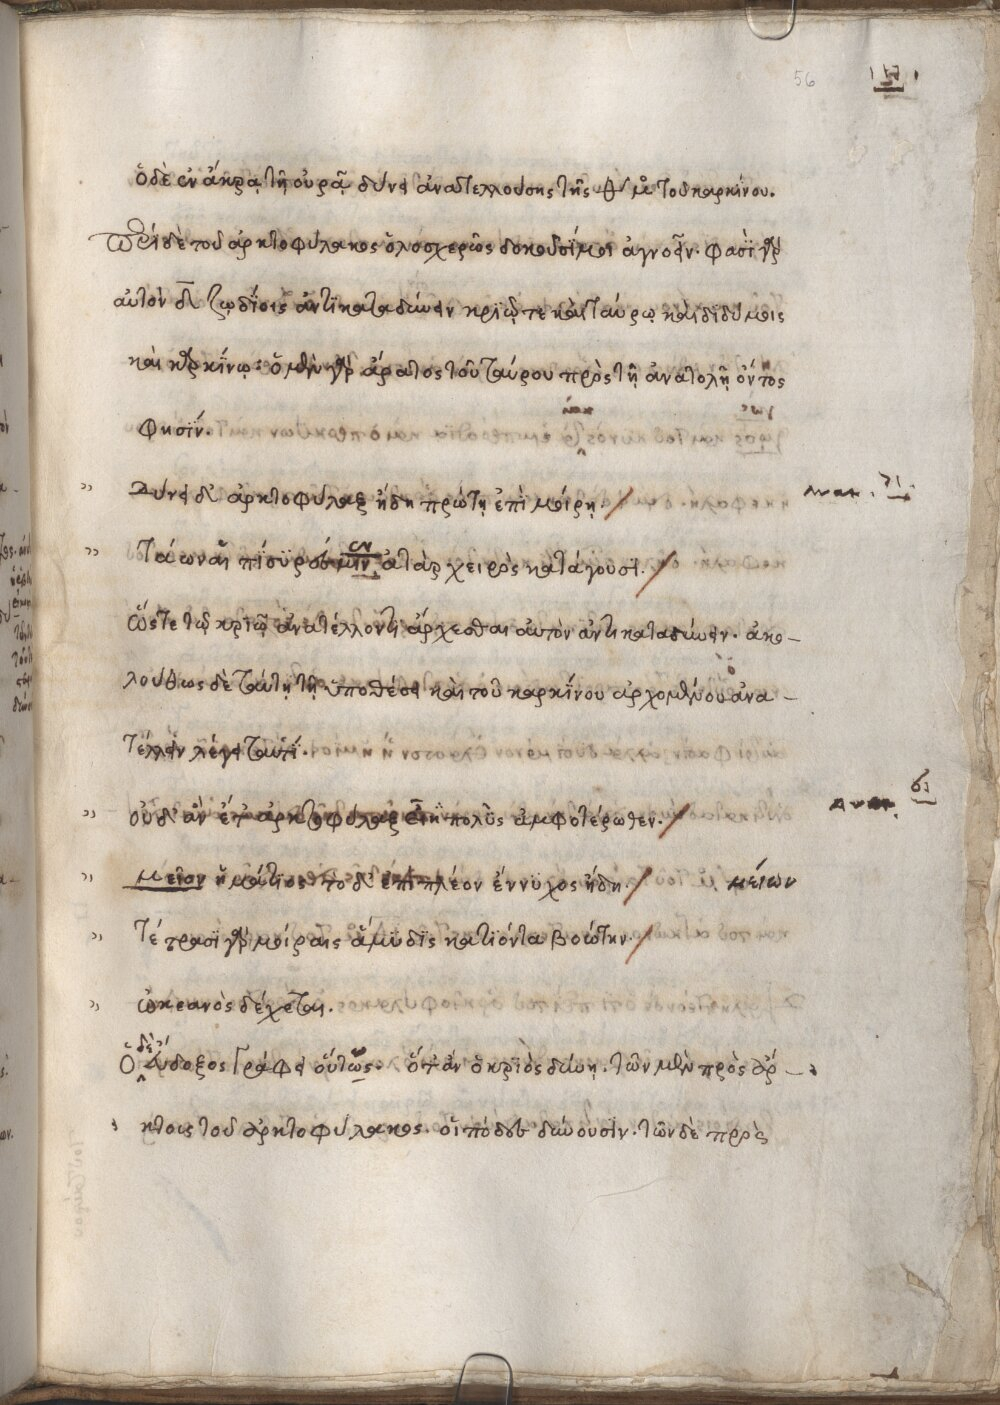 56
ὁ δὲ ἐν ἄκρᾳ τῇ οὐρᾷ δύνει ἀνατελλούσης τῆς θ μ τοῦ καρκίνου.
Περὶ δὲ τοῦ ἀρκτοφύλακος ὁλοσχερῶς δοκοῦσί μοι ἀγνοεῖν. φασὶ γὰρ
αὐτὸν δ ζῳδίοις ἀντικαταδύνειν κριῷ τε καὶ ταύρῳ καὶ διδύμοις
καὶ καρκίνῳ: ὁ μὲν γὰρ ἄρατος τοῦ ταύρου πρὸς τῇ ἀνατολῇ ὄντος
φησίν.
Δύνει δ' ἀρκτοφύλαξ ἤδη πρώτῃ ἐπὶ μοίρῃ /
Τάων αἳ πίσυρές μιν ἀτὰρ χειρὸς κατάγουσι. /
ὥστε τῷ κριῷ ἀνατέλλοντι ἄρχεσθαι αὐτὸν ἀντικαταδύνειν. ἀκο–
λούθως δὲ ταύτῃ τῇ ὑποθέσει καὶ τοῦ καρκίνου ἀρχομένου ἀνα–
τέλλειν λέγεται.
οὐδ' ἂν ἔτ' ἀρκτοφύλαξ εἴη πολὺς ἀμφοτέρωθεν. /
μεῖον ἠμάτιος τὸ δ' ἐπὶ πλέον ἐννύχος ἤδη. / μείων
Τέτρασι γὰρ μοίραις ἄμυδις κατιόντα βοώτην. /
ὠκεανὸς δέχεται.
Ὁ δὲ εὔδοξος γράφει οὕτως. ὅταν ὁ κριὸς δύνῃ. τῶν μὲν πρὸς ἄρ–
κτοις τοῦ ἀρκτοφύλακος. οἱ πόδες δύνουσιν. τῶν δὲ πρὸς